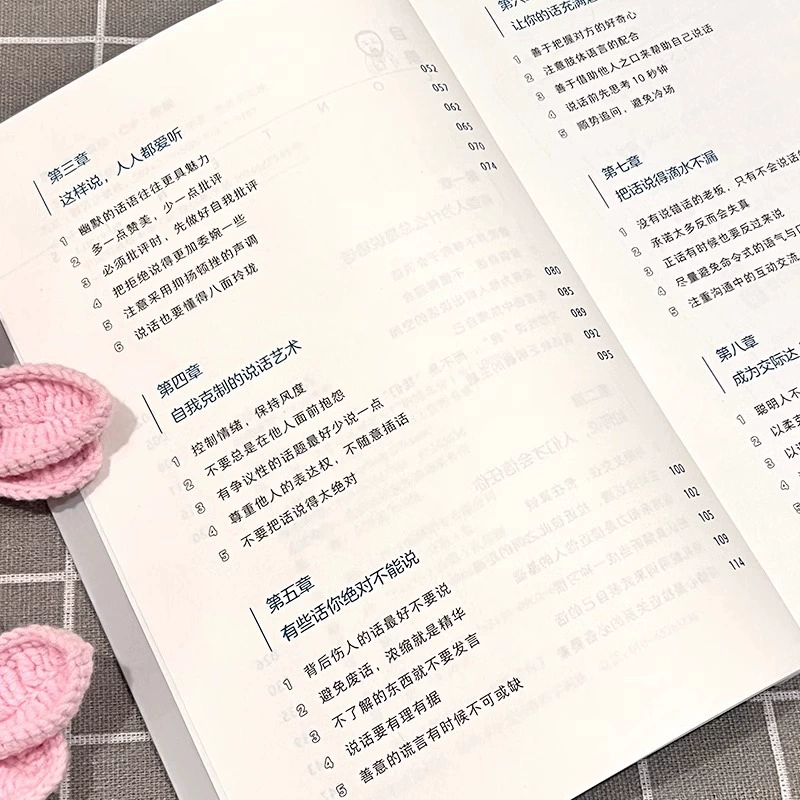 第三章
这样说，人人都爱听
1 幽默的话语往往更具魅力 052
2 多一点赞美，少一点批评 057
3 必须批评时，先做好自我批评 062
4 把拒绝说得更加委婉一些 065
5 注意采用抑扬顿挫的声调 070
6 说话也要懂得八面玲珑 074
第四章
自我克制的说话艺术
1 控制情绪，保持风度 080
2 不要总是在他人面前抱怨 085
3 有争议性的话题最好少说一点 089
4 尊重他人的表达权，不随意插话 092
5 不要把话说得太绝对 095
第五章
有些话你绝对不能说
1 背后伤人的话最好不要说 100
2 避免废话，浓缩就是精华 102
3 不了解的东西就不要发言 105
4 说话要有理有据 109
5 善意的谎言有时候不可或缺 114
让你的话充满
1 善于把握对方的好奇心
2 注意肢体语言的配合
3 善于借助他人之口来帮助自己说话
4 说话前先思考 10 秒钟
5 顺势追问，避免冷场
第七章
把话说得滴水不漏
1 没有说错话的老板，只有不会说话的
2 承诺太多反而会失真
3 正话有时候也要反过来说
4 尽量避免命令式的语气与
5 注重沟通中的互动交流
第八章
成为交际达
1 聪明人不
2 以柔克
3
4
5